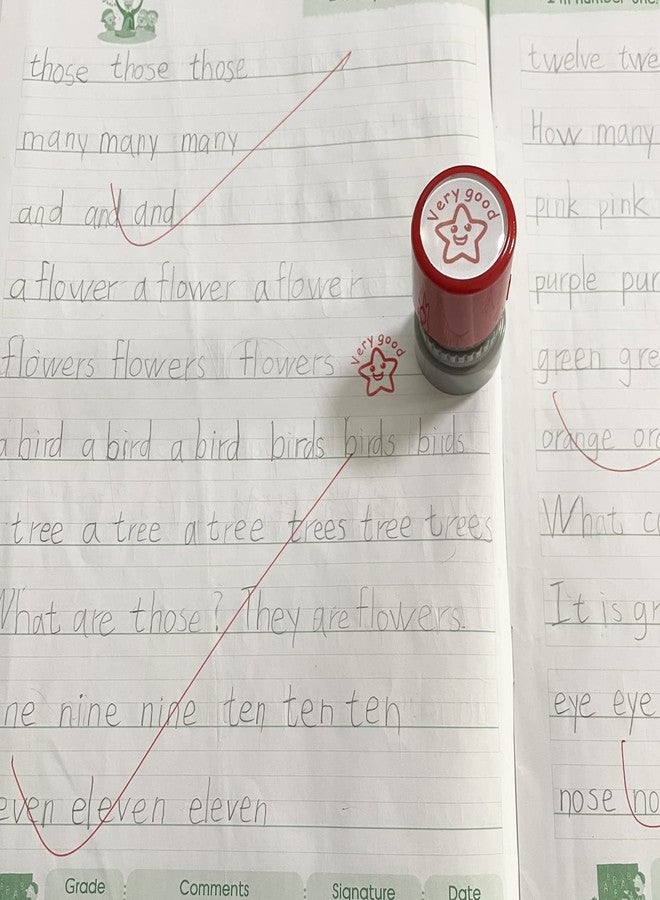 those those those
many many many
and and and
a flower a flower a flower
flowers flowers flowers
Very good
Very good
a bird a bird a bird birds birds birds
tree a tree a tree trees tree trees
What are those? They are flowers.
ne nine nine ten ten ten
even eleven eleven
Grade Comments Signature Date
twelve twe
How many
pink pink
purple pur
green gre
orange ora
What c
It is gr
eye eye
nose no